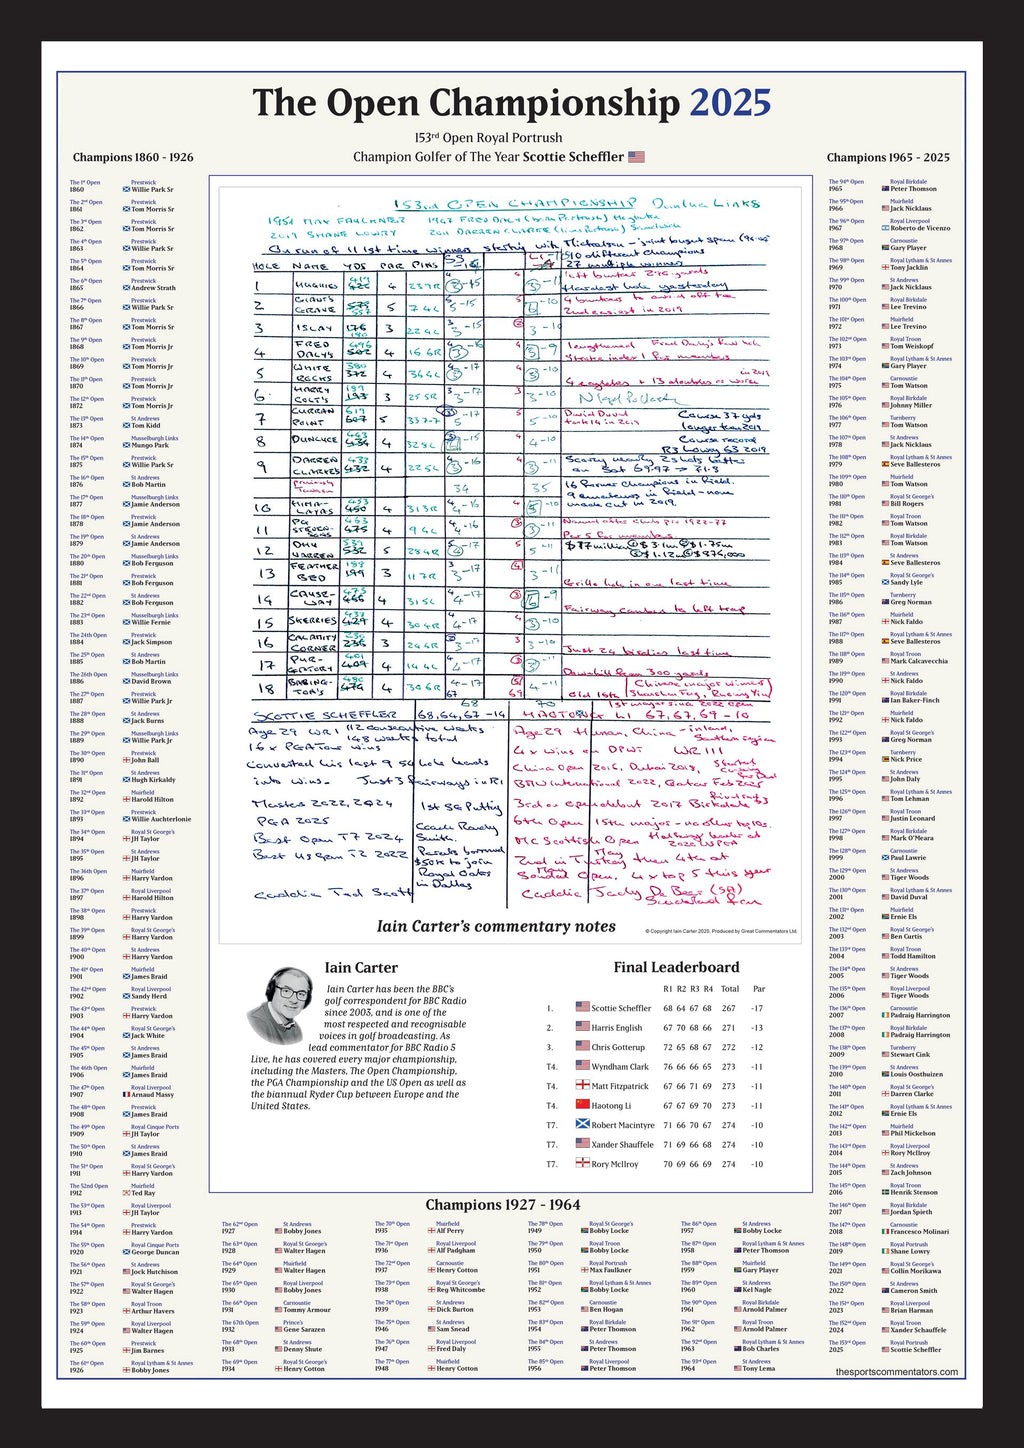 The Open Championship 2025
153rd Open Royal Portrush
Champion Golfer of The Year Scottie Scheffler
Champions 1860 - 1926
The 1st Open Prestwick
1860 Willie Park Sr
The 2nd Open Prestwick
1861 Tom Morris Sr
The 3rd Open Prestwick
1862 Tom Morris Sr
The 4th Open Prestwick
1863 Willie Park Sr
The 5th Open Prestwick
1864 Tom Morris Sr
The 6th Open Prestwick
1865 Andrew Strath
The 7th Open Prestwick
1866 Willie Park Sr
The 8th Open Prestwick
1867 Tom Morris Sr
The 9th Open Prestwick
1868 Tom Morris Jr
The 10th Open Prestwick
1869 Tom Morris Jr
The 11th Open Prestwick
1870 Tom Morris Jr
The 12th Open Prestwick
1872 Tom Morris Jr
The 13th Open St Andrews
1873 Tom Kidd
The 14th Open Musselburgh Links
1874 Mungo Park
The 15th Open Prestwick
1875 Willie Park Sr
The 16th Open St Andrews
1876 Bob Martin
The 17th Open Musselburgh Links
1877 Jamie Anderson
The 18th Open Prestwick
1878 Jamie Anderson
The 19th Open St Andrews
1879 Jamie Anderson
The 20th Open Musselburgh Links
1880 Bob Ferguson
The 21st Open Prestwick
1881 Bob Ferguson
The 22nd Open St Andrews
1882 Bob Ferguson
The 23rd Open Musselburgh Links
1883 Willie Fernie
The 24th Open Prestwick
1884 Jack Simpson
The 25th Open St Andrews
1885 Bob Martin
The 26th Open Musselburgh Links
1886 David Brown
The 27th Open Prestwick
1887 Willie Park Jr
The 28th Open St Andrews
1888 Jack Burns
The 29th Open Musselburgh Links
1889 Willie Park Jr
The 30th Open Prestwick
1890 John Ball
The 31st Open St Andrews
1891 Hugh Kirkaldy
The 32nd Open Muirfield
1892 Harold Hilton
The 33rd Open Prestwick
1893 Willie Auchterlonie
The 34th Open Royal St George's
1894 JH Taylor
The 35th Open St Andrews
1895 JH Taylor
The 36th Open Muirfield
1896 Harry Vardon
The 37th Open Royal Liverpool
1897 Harold Hilton
The 38th Open Prestwick
1898 Harry Vardon
The 39th Open Royal St George's
1899 Harry Vardon
The 40th Open St Andrews
1900 Harry Vardon
The 41st Open Muirfield
1901 James Braid
The 42nd Open Royal Liverpool
1902 Sandy Herd
The 43rd Open Prestwick
1903 Harry Vardon
The 44th Open Royal St George's
1904 Jack White
The 45th Open St Andrews
1905 James Braid
The 46th Open Muirfield
1906 James Braid
The 47th Open Royal Liverpool
1907 Arnaud Massy
The 48th Open Prestwick
1908 James Braid
The 49th Open Royal Cinque Ports
1909 JH Taylor
The 50th Open St Andrews
1910 James Braid
The 51st Open Royal St George's
1911 Harry Vardon
The 52nd Open Muirfield
1912 Ted Ray
The 53rd Open Royal Liverpool
1913 JH Taylor
The 54th Open Prestwick
1914 Harry Vardon
The 55th Open Royal Cinque Ports
1920 George Duncan
The 56th Open St Andrews
1921 Jock Hutchison
The 57th Open Royal St George's
1922 Walter Hagen
The 58th Open Royal Troon
1923 Arthur Havers
The 59th Open Royal Liverpool
1924 Walter Hagen
The 60th Open Prestwick
1925 Jim Barnes
The 61st Open Royal Lytham & St Annes
1926 Bobby Jones
153rd OPEN CHAMPIONSHIP Dunluce LINKS
1951 MAX FAULKNER 1947 FRED DALY (born Portrush) Hoylake
2019 SHANE LOWRY 2011 DARREN CLARKE (lives Portrush) Sandwich
On run of 11 1st time winners starting with Mickelson
510 different champions
27 multiple winners
HOLE NAME YDS PAR PINS
1 HUGHIES 4 left bunker 246 yards
Hardest hole yesterday
2 GIANT'S GRAVE 5 4 bunkers to avoid off tee
2nd easiest in 2019
3 ISLAY 3
4 FRED DALY'S 4 lengthened Fred Daly's
Stroke index 1 for members
5 WHITE ROCKS 4 in 2019
4 eagles + 13 doubles or worse
6 HARRY COLT'S 3
7 CURRAN POINT 5 David Duval took 14 in 2019
Course 37 yds longer than 2019
8 DUNLUCE 4 Course record
R3 Lowry 63 2019
9 DARREN CLARKE'S 4
on Sat 69.97 → 71.3
34 35 16 former champions in field.
9 amateurs in field - none made cut in 2019.
10 HIMALAYAS 4
11 PG STEVENSON'S 4 Named after club pro 1922-77
Par 5 for members
12 DHU VARREN 5 $17 million
13 FEATHER BED 3 Grillo hole in one last time
14 CAUSEWAY 4 Fairway cambers to left trap
15 SKERRIES 4
16 CALAMITY CORNER 3 Just 24 birdies last time
17 PURGATORY 4 Downhill from 300 yards
18 BABINGTON'S 4 Old 16th
Chinese major winners
Shanshan Feng, Ruoning Yin
68 70 1st major since 2022 Open
SCOTTIE SCHEFFLER 68, 64, 67 -14 HAOTONG LI 67, 67, 69 -10
Age 29 WR1 112 consecutive weeks
148 weeks total
16 x PGA Tour wins
Converted his last 9 54 hole leads
into wins. Just 3 fairways in R1
Masters 2022, 2024
PGA 2025
Best Open T7 2024
Best US Open T2 2022
Caddie Ted Scott
1st SG Putting
Coach Randy Smith.
Parents borrowed
$50k to join
Royal Oaks
in Dallas
Age 29 Hunan, China - inland,
4 x wins on DPWT WR 111
China Open 2016, Dubai 2018,
BMW International 2022, Qatar Feb 2025
3rd on Open debut 2017 Birkdale
6th Open 15th major - no other top 10s.
MC Scottish Open Halfway leader at 2020 USPGA
2nd in Turkey May then 4th at
Soudal Open. May 4 x top 5 this year
Caddie Jady De Beer (SA)
Iain Carter's commentary notes
© Copyright Iain Carter 2025, Produced by Great Commentators Ltd.
Iain Carter
Iain Carter has been the BBC's
golf correspondent for BBC Radio
since 2003, and is one of the
most respected and recognisable
voices in golf broadcasting. As
lead commentator for BBC Radio 5
Live, he has covered every major championship,
including the Masters, The Open Championship,
the PGA Championship and the US Open as well as
the biannual Ryder Cup between Europe and the
United States.
Final Leaderboard
R1 R2 R3 R4 Total Par
1. Scottie Scheffler 68 64 67 68 267 -17
2. Harris English 67 70 68 66 271 -13
3. Chris Gotterup 72 65 68 67 272 -12
T4. Wyndham Clark 76 66 66 65 273 -11
T4. Matt Fitzpatrick 67 66 71 69 273 -11
T4. Haotong Li 67 67 69 70 273 -11
T7. Robert Macintyre 71 66 70 67 274 -10
T7. Xander Shauffele 71 69 66 68 274 -10
T7. Rory McIlroy 70 69 66 69 274 -10
Champions 1927 - 1964
The 62nd Open St Andrews
1927 Bobby Jones
The 63rd Open Royal St George's
1928 Walter Hagen
The 64th Open Muirfield
1929 Walter Hagen
The 65th Open Royal Liverpool
1930 Bobby Jones
The 66th Open Carnoustie
1931 Tommy Armour
The 67th Open Prince's
1932 Gene Sarazen
The 68th Open St Andrews
1933 Denny Shute
The 69th Open Royal St George's
1934 Henry Cotton
The 70th Open Muirfield
1935 Alf Perry
The 71st Open Royal Liverpool
1936 Alf Padgham
The 72nd Open Carnoustie
1937 Henry Cotton
The 73rd Open Royal St George's
1938 Reg Whitcombe
The 74th Open St Andrews
1939 Dick Burton
The 75th Open St Andrews
1946 Sam Snead
The 76th Open Royal Liverpool
1947 Fred Daly
The 77th Open Muirfield
1948 Henry Cotton
The 78th Open Royal St George's
1949 Bobby Locke
The 79th Open Royal Troon
1950 Bobby Locke
The 80th Open Royal Portrush
1951 Max Faulkner
The 81st Open Royal Lytham & St Annes
1952 Bobby Locke
The 82nd Open Carnoustie
1953 Ben Hogan
The 83rd Open Royal Birkdale
1954 Peter Thomson
The 84th Open St Andrews
1955 Peter Thomson
The 85th Open Royal Liverpool
1956 Peter Thomson
The 86th Open St Andrews
1957 Bobby Locke
The 87th Open Royal Lytham & St Annes
1958 Peter Thomson
The 88th Open Muirfield
1959 Gary Player
The 89th Open St Andrews
1960 Kel Nagle
The 90th Open Royal Birkdale
1961 Arnold Palmer
The 91st Open Royal Troon
1962 Arnold Palmer
The 92nd Open Royal Lytham & St Annes
1963 Bob Charles
The 93rd Open St Andrews
1964 Tony Lema
Champions 1965 - 2025
The 94th Open Royal Birkdale
1965 Peter Thomson
The 95th Open Muirfield
1966 Jack Nicklaus
The 96th Open Royal Liverpool
1967 Roberto de Vicenzo
The 97th Open Carnoustie
1968 Gary Player
The 98th Open Royal Lytham & St Annes
1969 Tony Jacklin
The 99th Open St Andrews
1970 Jack Nicklaus
The 100th Open Royal Birkdale
1971 Lee Trevino
The 101st Open Muirfield
1972 Lee Trevino
The 102nd Open Royal Troon
1973 Tom Weiskopf
The 103rd Open Royal Lytham & St Annes
1974 Gary Player
The 104th Open Carnoustie
1975 Tom Watson
The 105th Open Royal Birkdale
1976 Johnny Miller
The 106th Open Turnberry
1977 Tom Watson
The 107th Open St Andrews
1978 Jack Nicklaus
The 108th Open Royal Lytham & St Annes
1979 Seve Ballesteros
The 109th Open Muirfield
1980 Tom Watson
The 110th Open Royal St George's
1981 Bill Rogers
The 111th Open Royal Troon
1982 Tom Watson
The 112th Open Royal Birkdale
1983 Tom Watson
The 113th Open St Andrews
1984 Seve Ballesteros
The 114th Open Royal St George's
1985 Sandy Lyle
The 115th Open Turnberry
1986 Greg Norman
The 116th Open Muirfield
1987 Nick Faldo
The 117th Open Royal Lytham & St Annes
1988 Seve Ballesteros
The 118th Open Royal Troon
1989 Mark Calcavecchia
The 119th Open St Andrews
1990 Nick Faldo
The 120th Open Royal Birkdale
1991 Ian Baker-Finch
The 121st Open Muirfield
1992 Nick Faldo
The 122nd Open Royal St George's
1993 Greg Norman
The 123rd Open Turnberry
1994 Nick Price
The 124th Open St Andrews
1995 John Daly
The 125th Open Royal Lytham & St Annes
1996 Tom Lehman
The 126th Open Royal Troon
1997 Justin Leonard
The 127th Open Royal Birkdale
1998 Mark O'Meara
The 128th Open Carnoustie
1999 Paul Lawrie
The 129th Open St Andrews
2000 Tiger Woods
The 130th Open Royal Lytham & St Annes
2001 David Duval
The 131st Open Muirfield
2002 Ernie Els
The 132nd Open Royal St George's
2003 Ben Curtis
The 133rd Open Royal Troon
2004 Todd Hamilton
The 134th Open St Andrews
2005 Tiger Woods
The 135th Open Royal Liverpool
2006 Tiger Woods
The 136th Open Carnoustie
2007 Padraig Harrington
The 137th Open Royal Birkdale
2008 Padraig Harrington
The 138th Open Turnberry
2009 Stewart Cink
The 139th Open St Andrews
2010 Louis Oosthuizen
The 140th Open Royal St George's
2011 Darren Clarke
The 141st Open Royal Lytham & St Annes
2012 Ernie Els
The 142nd Open Muirfield
2013 Phil Mickelson
The 143rd Open Royal Liverpool
2014 Rory McIlroy
The 144th Open St Andrews
2015 Zach Johnson
The 145th Open Royal Troon
2016 Henrik Stenson
The 146th Open Royal Birkdale
2017 Jordan Spieth
The 147th Open Carnoustie
2018 Francesco Molinari
The 148th Open Royal Portrush
2019 Shane Lowry
The 149th Open Royal St George's
2021 Collin Morikawa
The 150th Open St Andrews
2022 Cameron Smith
The 151st Open Royal Liverpool
2023 Brian Harman
The 152nd Open Royal Troon
2024 Xander Schauffele
The 153rd Open Royal Portrush
2025 Scottie Scheffler
thesportscommentators.com